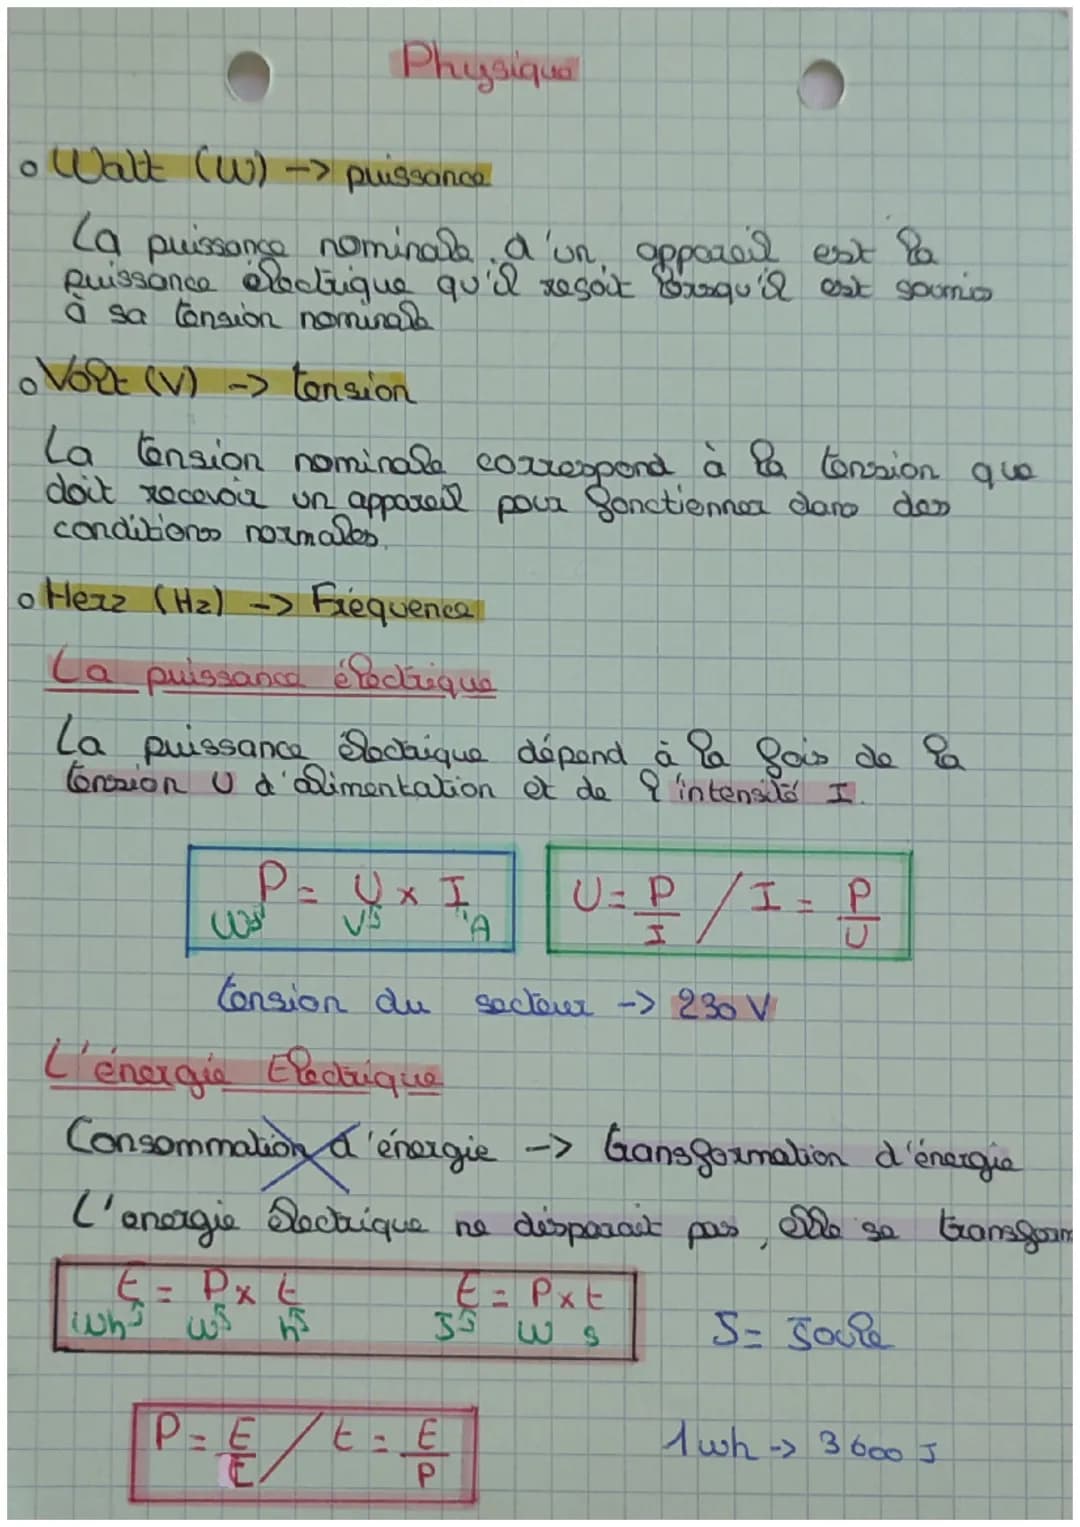 Physique
Watt (W) -> puissance
La puissance nominale d'un appareil est la
puissance électrique qu'il reçoit lorsqu'il est soumis
à sa tension nominale
Volt (V) -> tension
La tension nominale correspond à la tension que
doit recevoir un appareil pour fonctionner dans des
conditions normales.
Herz (Hz) -> Fréquence
La puissance électrique
La puissance électrique dépend à la fois de la
tension U d'alimentation et de l'intensité I.
P = U x I
W V A
U = P/I / I = P/U
tension du secteur -> 230 V
L'énergie Electrique
Consommation d'énergie -> transformation d'énergie
L'energie électrique ne disparait pas, elle se transform
E = P x t E = P x t
Wh W h J W s
J = Joule
P = E/t / t = E/P
1 wh -> 3600 J